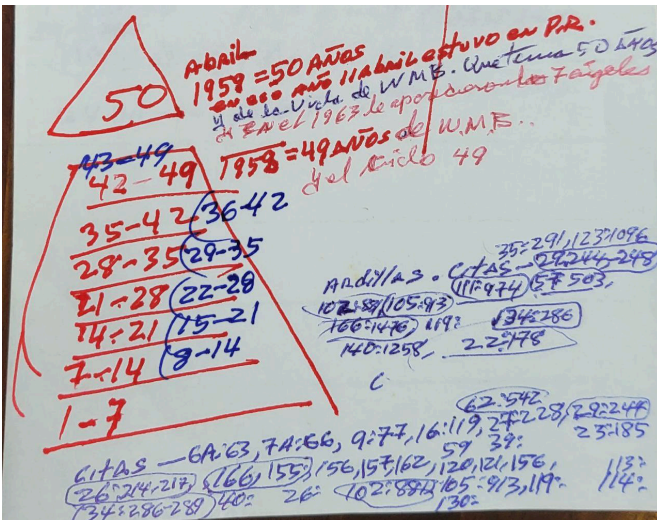 50
Abril
1958 = 50 AÑOS
en ese año 11 Abril estuvo en P.R.
y de la Vida de W.M.B. Que tenia 50 AÑOS
y en el 1963 le aparecieron los 7 ángeles
43-49
42-49
1958 = 49 AÑOS de W.M.B..
y el Ciclo 49
35-42 (36-42
28-35 (29-35
21-28 (22-28
14-21 (15-21
7-14 (8-14
1-7
35=291, 123=1096
Ardillas. Citas - 29:244-248
102:89, 105:913
111=974 57:503,
166=1476 119= 134:286
140=1258, 22=178
62=542
Citas - 6A:63, 7A:66, 9=77, 16:119, 27=228, 29=247
59 39= 23=185
26=214,217, 166, 155= 156, 157, 162, 120, 121, 156, 113=
134=286-289 40= 26= 102=889 105=913, 119= 114=
130=